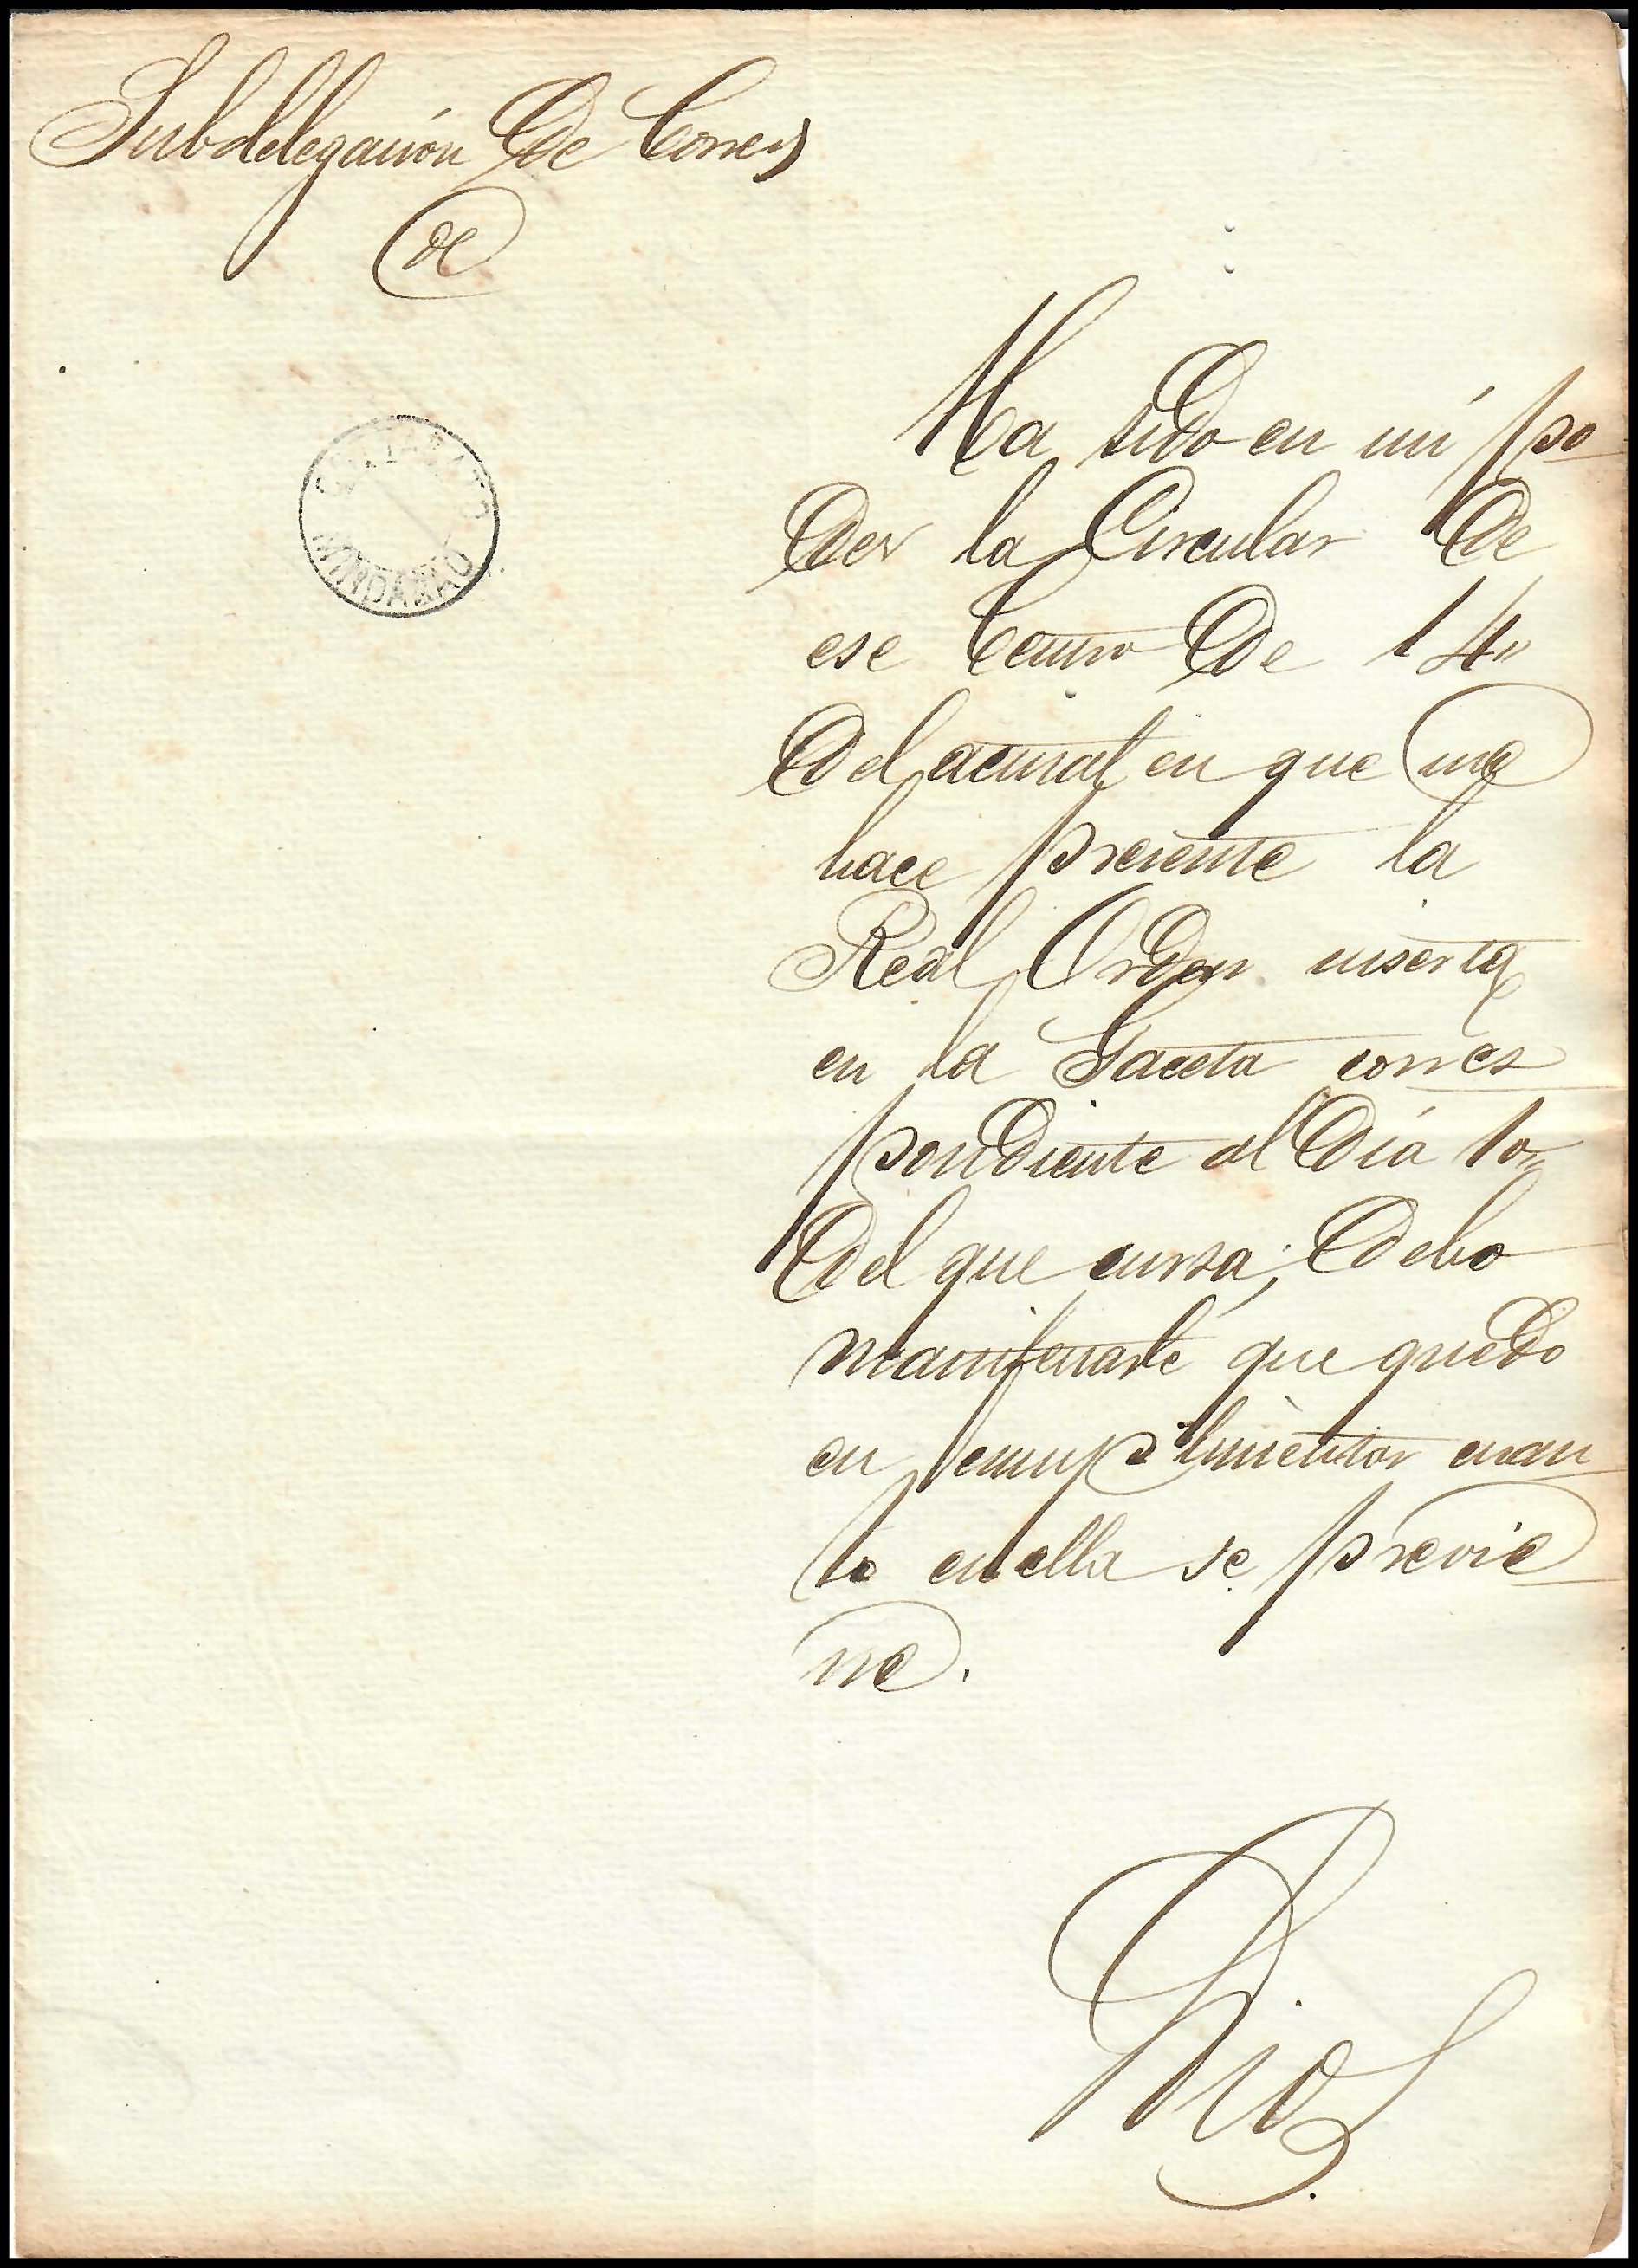 Subdelegación de Correos
de
MINDANAO
Ha sido en mi po
der la Circular de
ese Centro de 14"
del actual en que me
hace presente la
Real Orden inserta
en la Gaceta corres
pondiente al día 10"
del que cursa; debo
manifestarle que quedo
en cumplimentar cuan
to en ella se previe
ne.
Dios